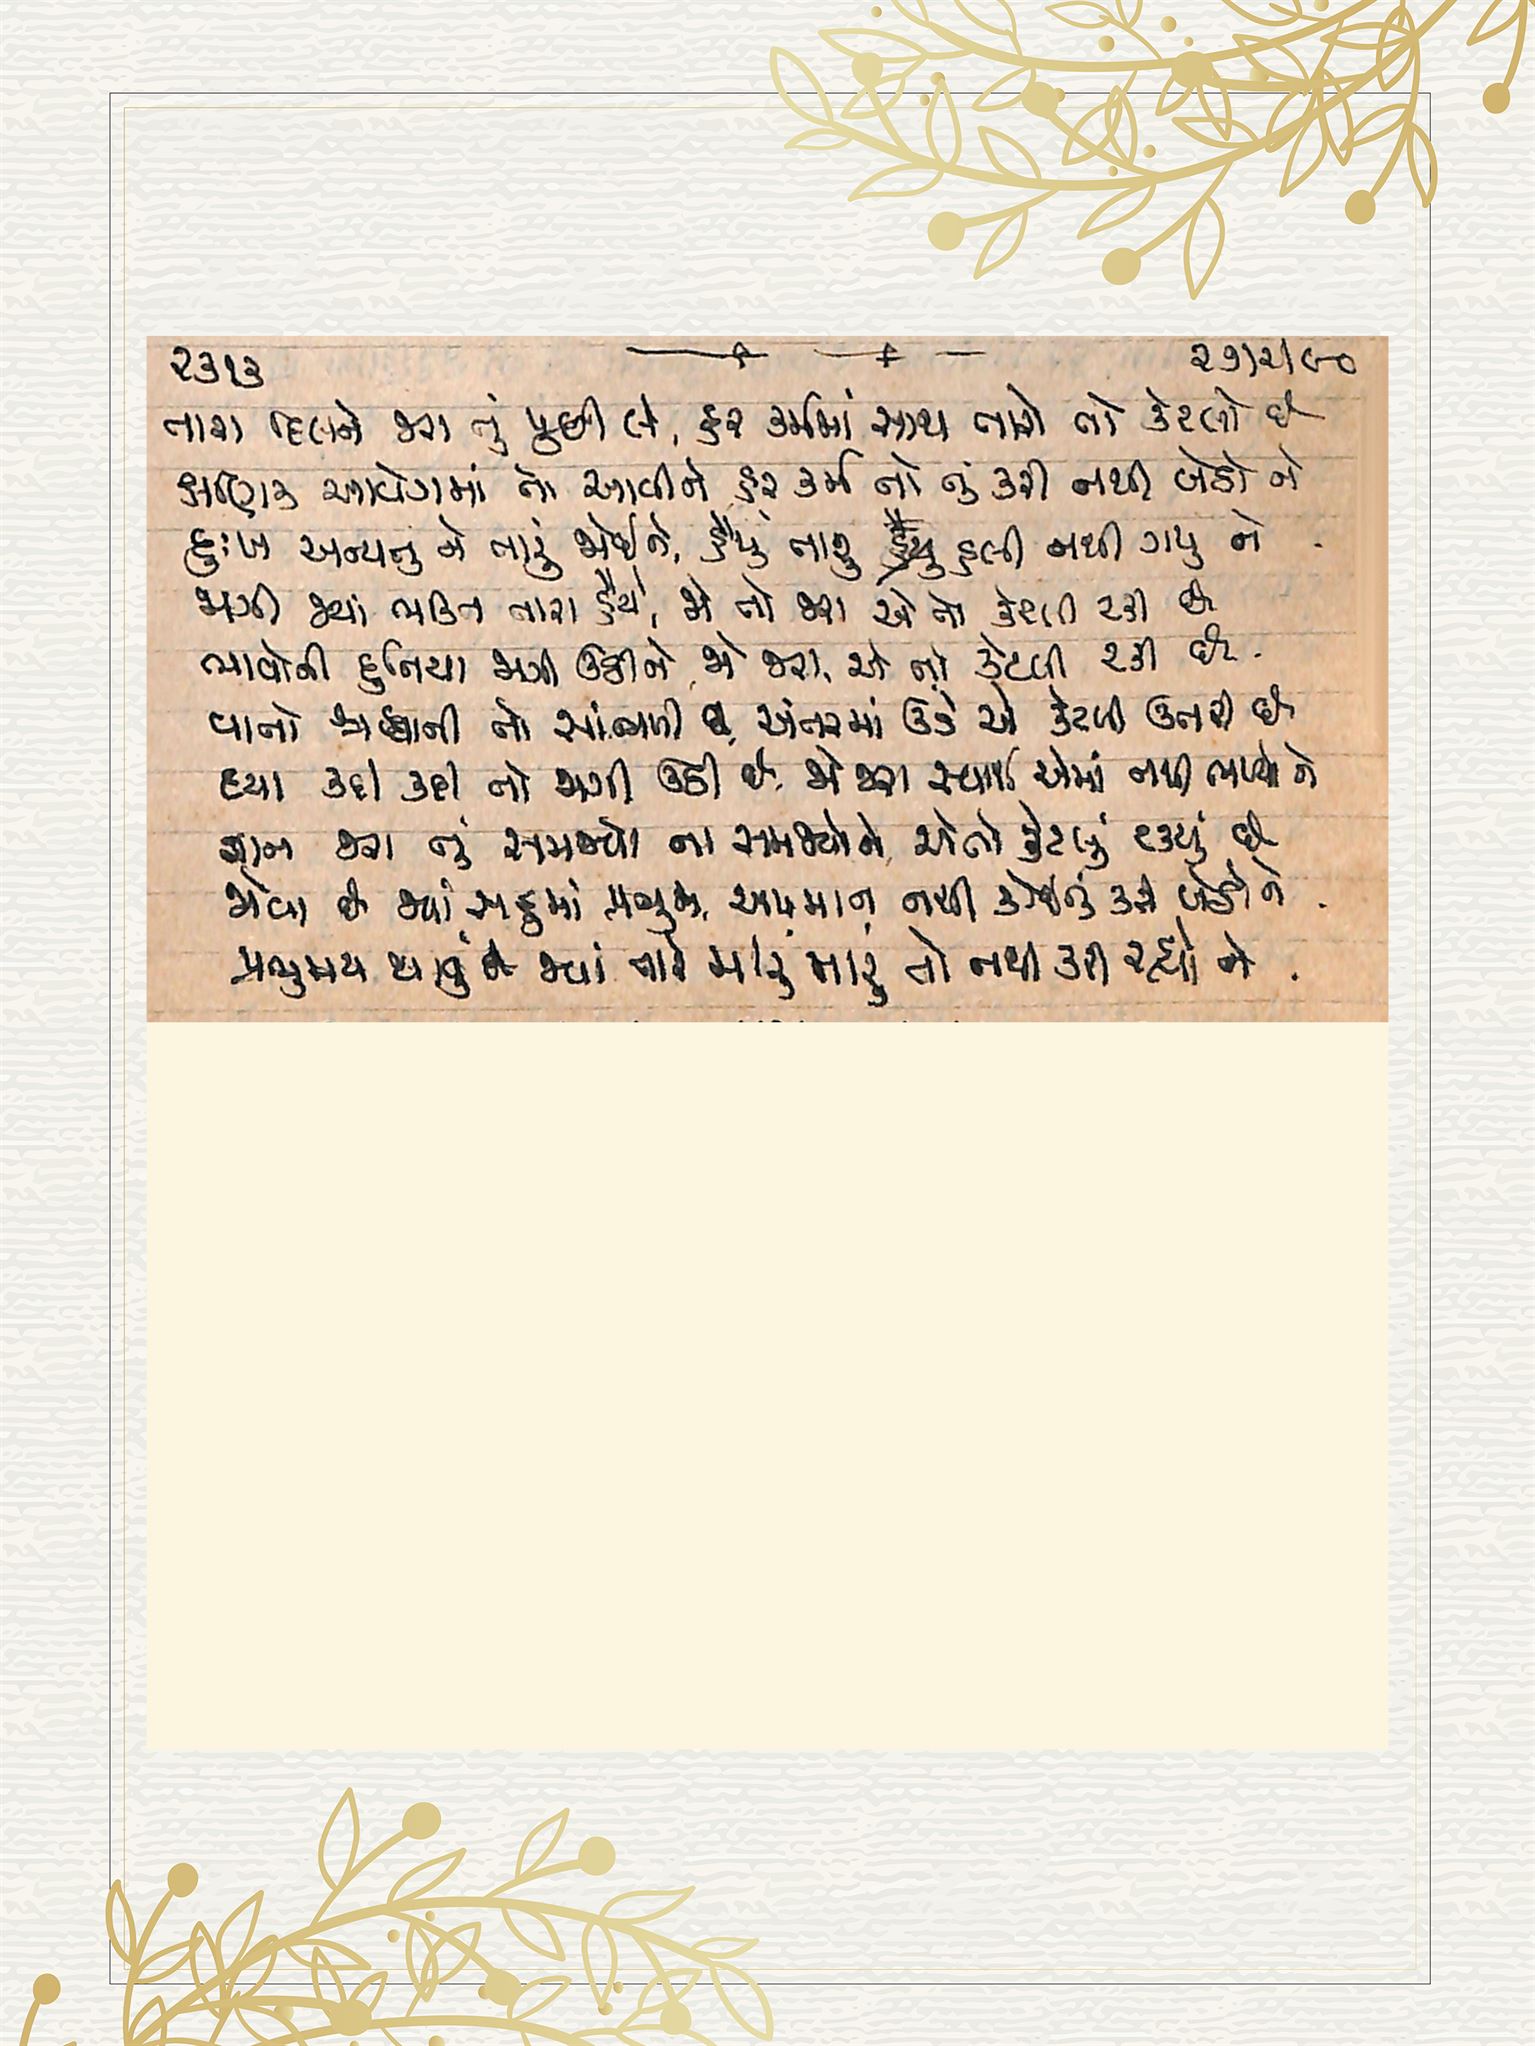 ૨૩૧૩ ૨૭/૨/૯૦
તારા દિલને જરા તું પુછી લે, ક્રુર કર્મમાં સાથ તારો તો કેટલો છે
ક્ષણિક આવેગમાં તો આવીને ક્રુર કર્મ તો તું કરી નથી બેઠો ને
દુઃખ અન્યનુ ને તારું જોઈને, હૈયું તારુ હલી નથી ગયુ ને .
જાગી જ્યાં ભક્તિ તારા હૈયે, જો તો જરા એ તો કેટલી ટકી છે
ભાવોની દુનિયા જાગી ઉઠીને, જો જરા, એ તો કેટલી ટકી છે .
વાતો જ્ઞાનની તો સાંભળી, અંતરમાં ઉંડે એ કેટલી ઉતરી છે
દયા કદી કદી તો જાગી ઉઠી છે, જો જરા સ્વાર્થ એમાં નથી ભળ્યો ને
જ્ઞાન જરા તું સમજ્યો ના સમજ્યોને, એતો કેટલું ટક્યું છે
જોવા છે જ્યાં સહુમાં પ્રભુને, અપમાન નથી કોઈનું કરી બેઠો ને .
પ્રભુમય થાવું છે જ્યાં તારે મારું મારું તો નથી કરી રહ્યો ને .